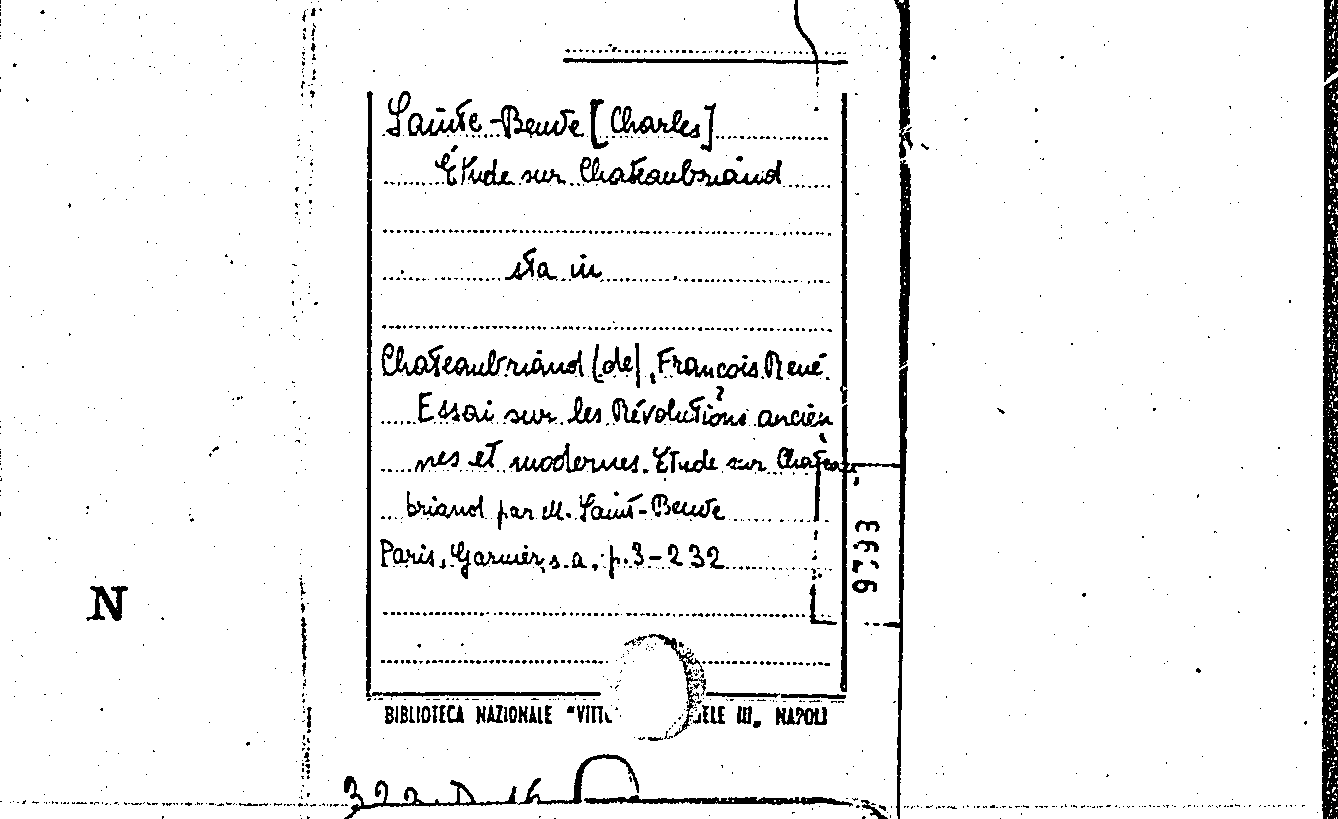 Sainte-Beuve [Charles]
Étude sur Chateaubriand
sta in
Chateaubriand (de), François René.
Essai sur les Révolutions ancien
nes et modernes. Etude sur Chateau-
briand par M. Saint-Beuve
Paris, Garnier, s.a., p.3-232
9793
N
BIBLIOTECA NAZIONALE "VITTO ELE III„ NAPOLI